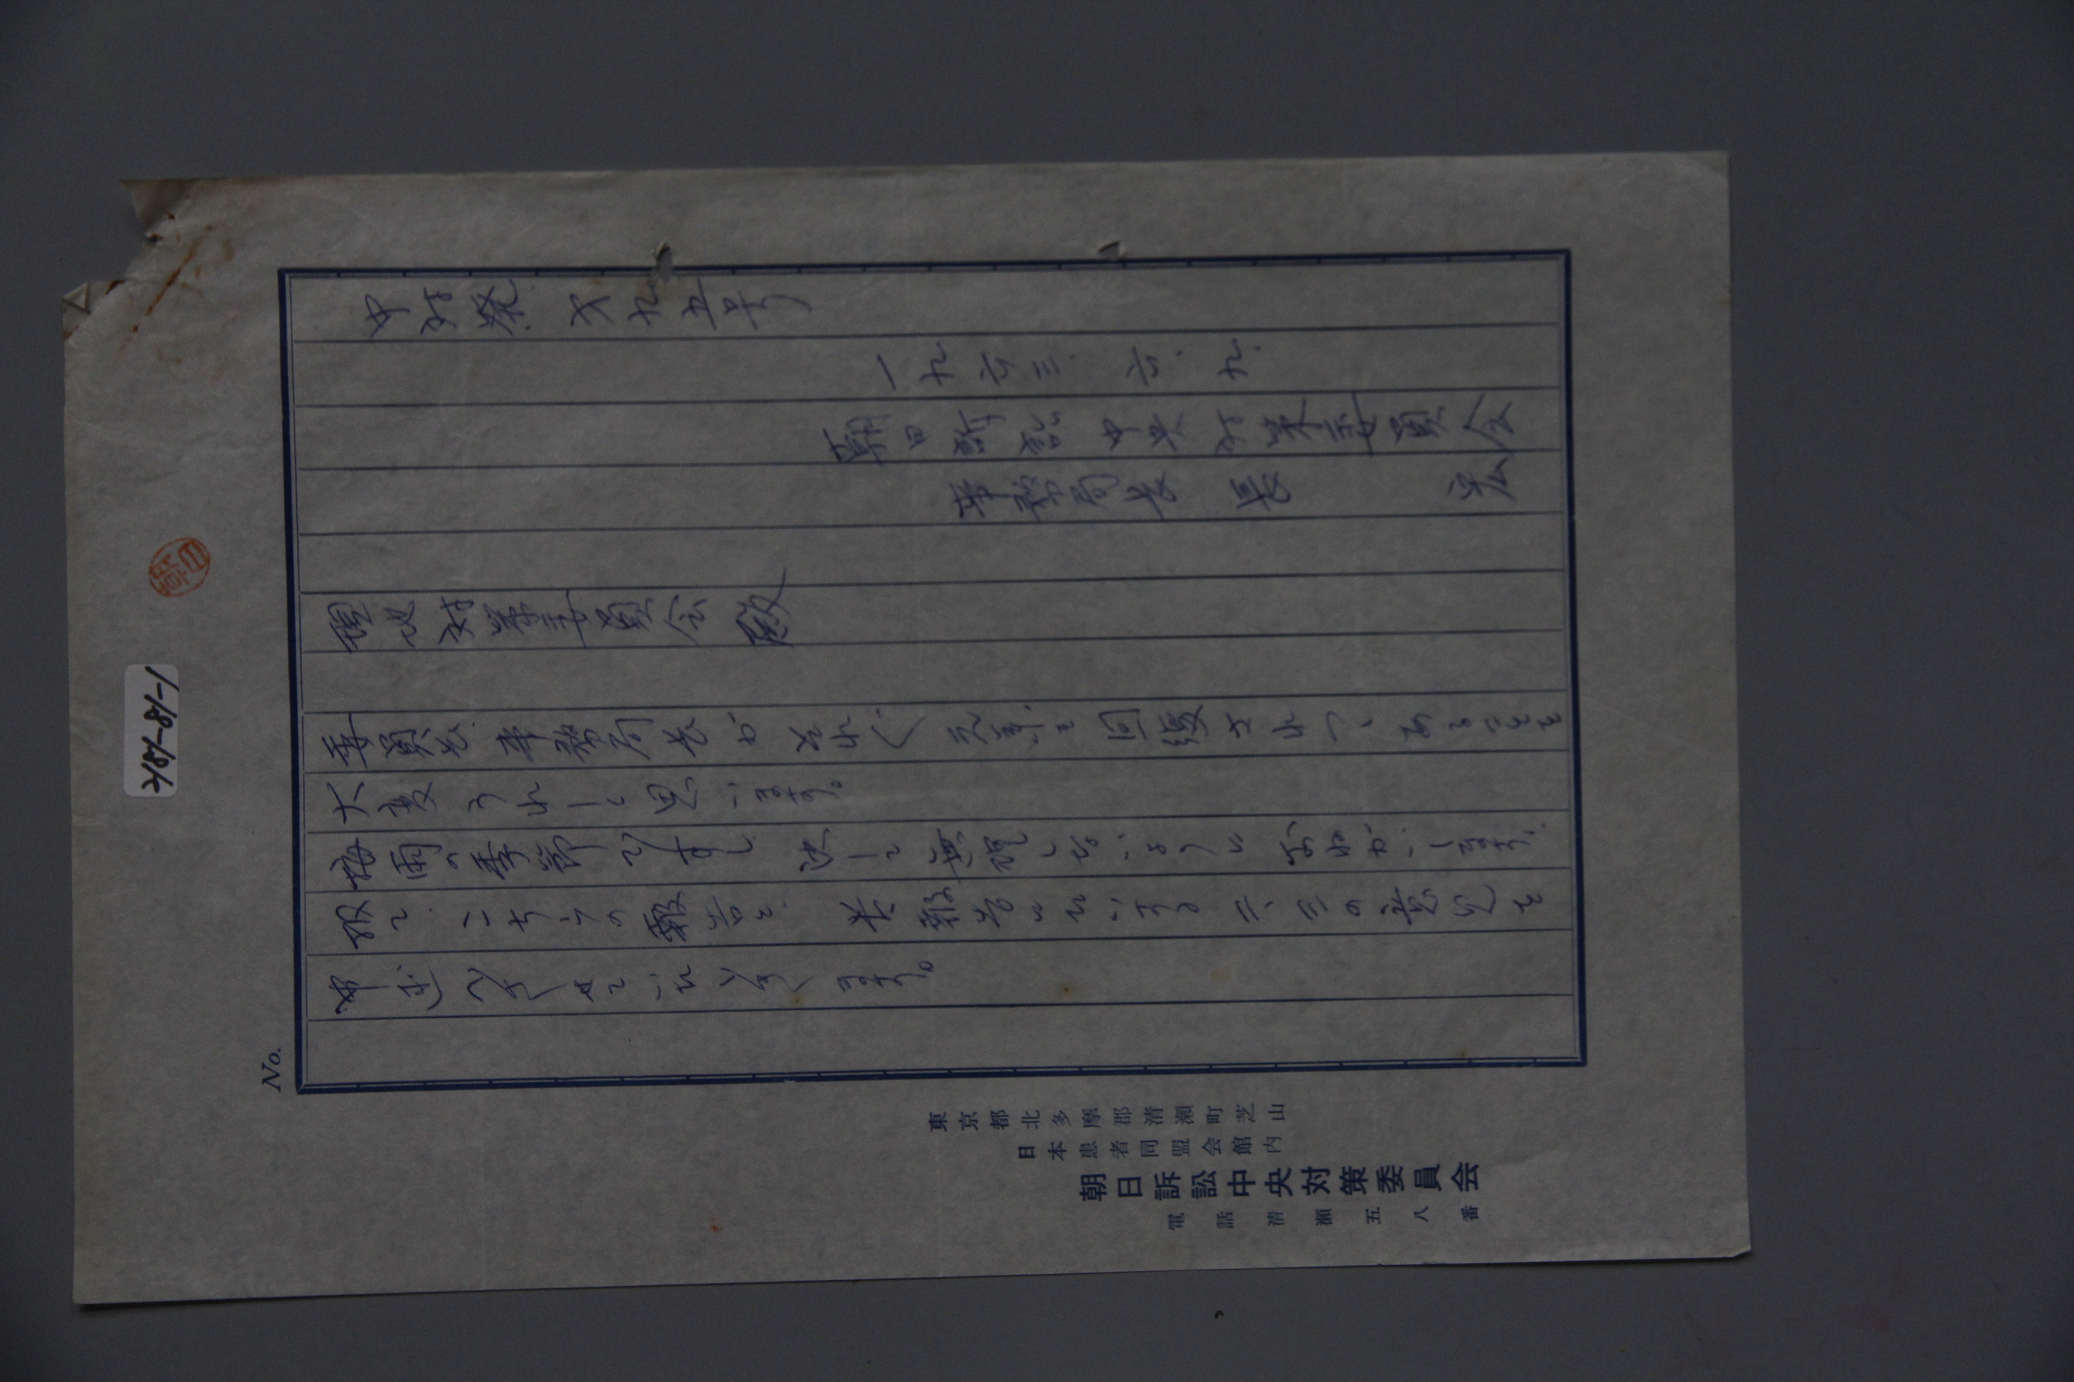 中対発 六九五号
一九六三.六.九.
朝日訴訟中央対策委員会
事務局長 長 宏
現地対策委員会殿
委員長、事務局長がそれぞれ元気を回復されつゝあることを
大変うれしく思います。
梅雨の季節ですし、決して無理しないようにおねがいします。
扨て、こちらの報告と、来報告にたいする二、三の意見を
申述べさせていたゞきます。
No.
東京都北多摩郡清瀬町芝山
日本患者同盟会館内
朝日訴訟中央対策委員会
電話清瀬五八番
1-18-12k